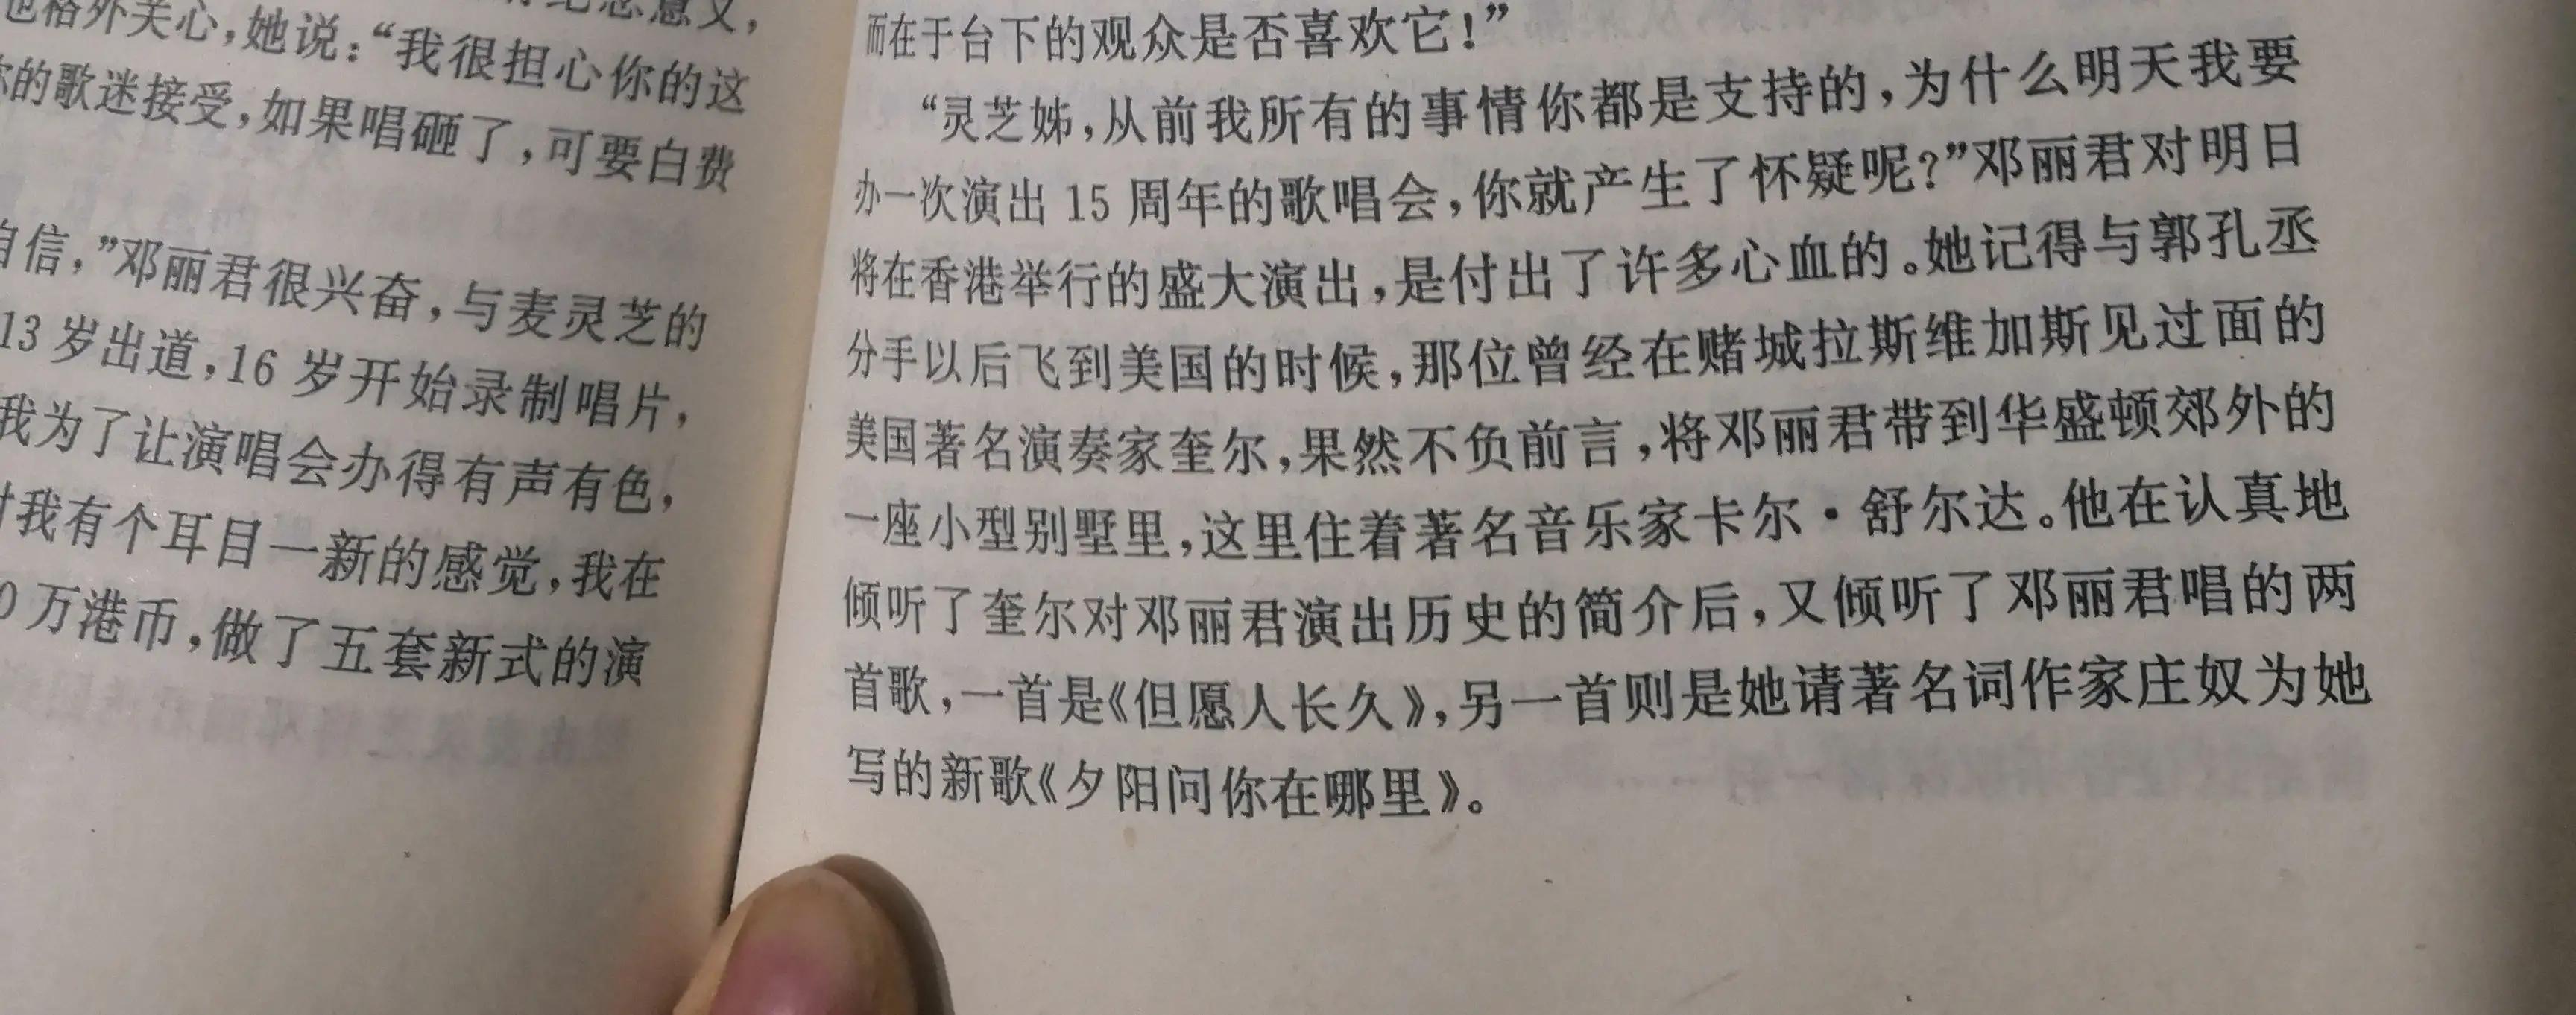 也格外关心，她说：“我很担心你的这
你的歌迷接受，如果唱砸了，可要白费
自信，”邓丽君很兴奋，与麦灵芝的
13岁出道，16岁开始录制唱片，
我为了让演唱会办得有声有色，
对我有个耳目一新的感觉，我在
0万港币，做了五套新式的演
而在于台下的观众是否喜欢它！”
“灵芝姊，从前我所有的事情你都是支持的，为什么明天我要
办一次演出15周年的歌唱会，你就产生了怀疑呢？”邓丽君对明日
将在香港举行的盛大演出，是付出了许多心血的。她记得与郭孔丞
分手以后飞到美国的时候，那位曾经在赌城拉斯维加斯见过面的
美国著名演奏家奎尔，果然不负前言，将邓丽君带到华盛顿郊外的
一座小型别墅里，这里住着著名音乐家卡尔·舒尔达。他在认真地
倾听了奎尔对邓丽君演出历史的简介后，又倾听了邓丽君唱的两
首歌，一首是《但愿人长久》，另一首则是她请著名词作家庄奴为她
写的新歌《夕阳问你在哪里》。